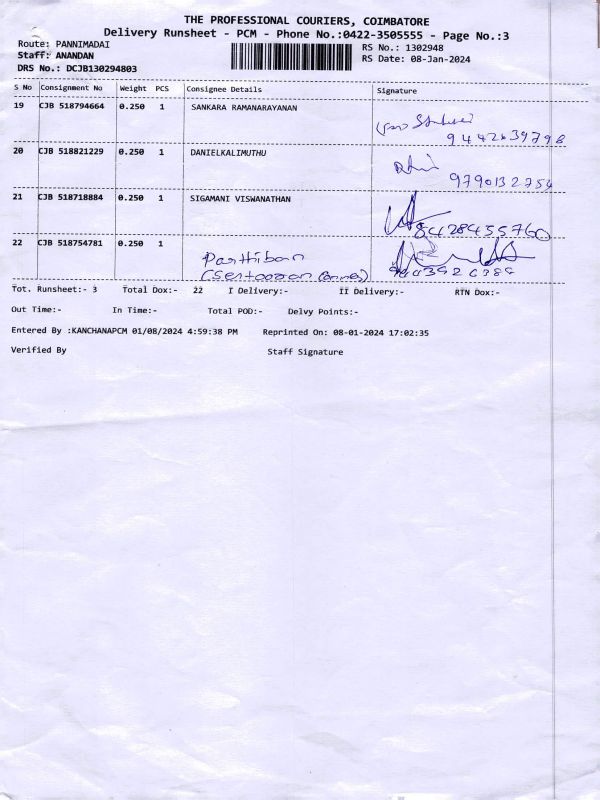 THE PROFESSIONAL COURIERS, COIMBATORE
Delivery Runsheet - PCM - Phone No.:0422-3505555 - Page No.:3
Route: PANNIMADAI RS No.: 1302948
Staff: ANANDAN RS Date: 08-Jan-2024
DRS No.: DCJB130294803
S No Consignment No Weight PCS Consignee Details Signature
19 CJB 518794664 0.250 1 SANKARA RAMANARAYANAN
9442639798
20 CJB 518821229 0.250 1 DANIELKALIMUTHU
9790132754
21 CJB 518718884 0.250 1 SIGAMANI VISWANATHAN
8428455760
22 CJB 518754781 0.250 1 Parthiban
Tot. Runsheet:- 3 Total Dox:- 22 I Delivery:- II Delivery:- RTN Dox:-
Out Time:- In Time:- Total POD:- Delvy Points:-
Entered By :KANCHANAPCM 01/08/2024 4:59:38 PM Reprinted On: 08-01-2024 17:02:35
Verified By Staff Signature